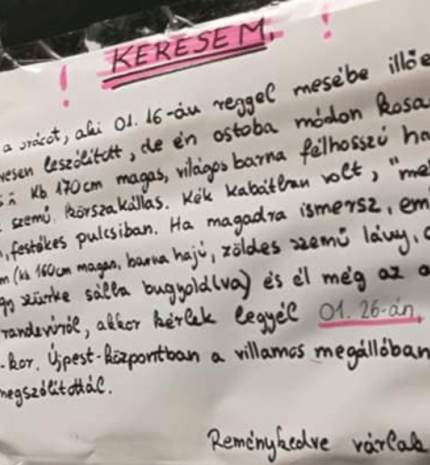 ! KERESEM, !
a srácot, aki 01.16-án reggel mesébe illőe
vesen leszólított, de én ostoba módon kosa
Kb 170cm magas, világos barna félhosszú ha
szemű, körszakállas. Kék kabátban volt, "me
, festékes pulcsiban. Ha magadra ismersz, em
m (kb 160cm magas, barna hajú, zöldes szemű lány,
szürke sálba bugyolál(va) és él még az a
randevúról, akkor kérlek legyél 01.26-án,
-kor, Újpest-központban a villamos megállóban
megszólítottál.
Reménykedve várlak